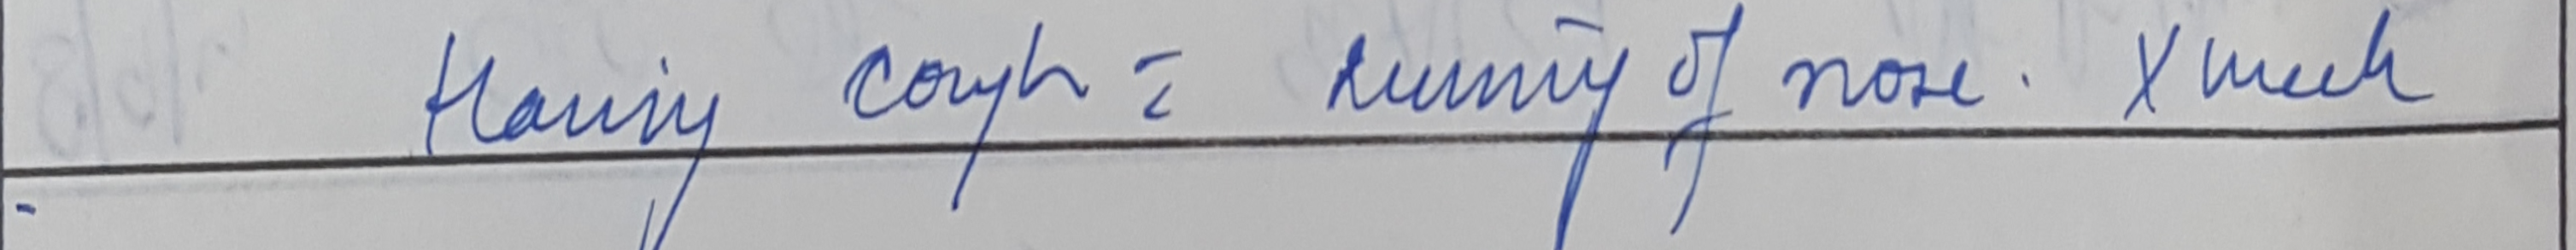 Having cough = running of nose. X week